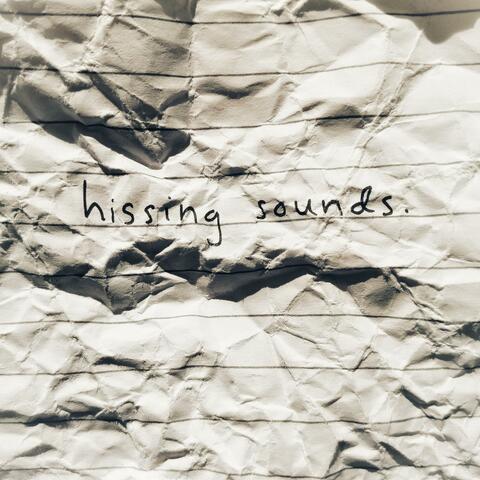 hissing sounds.